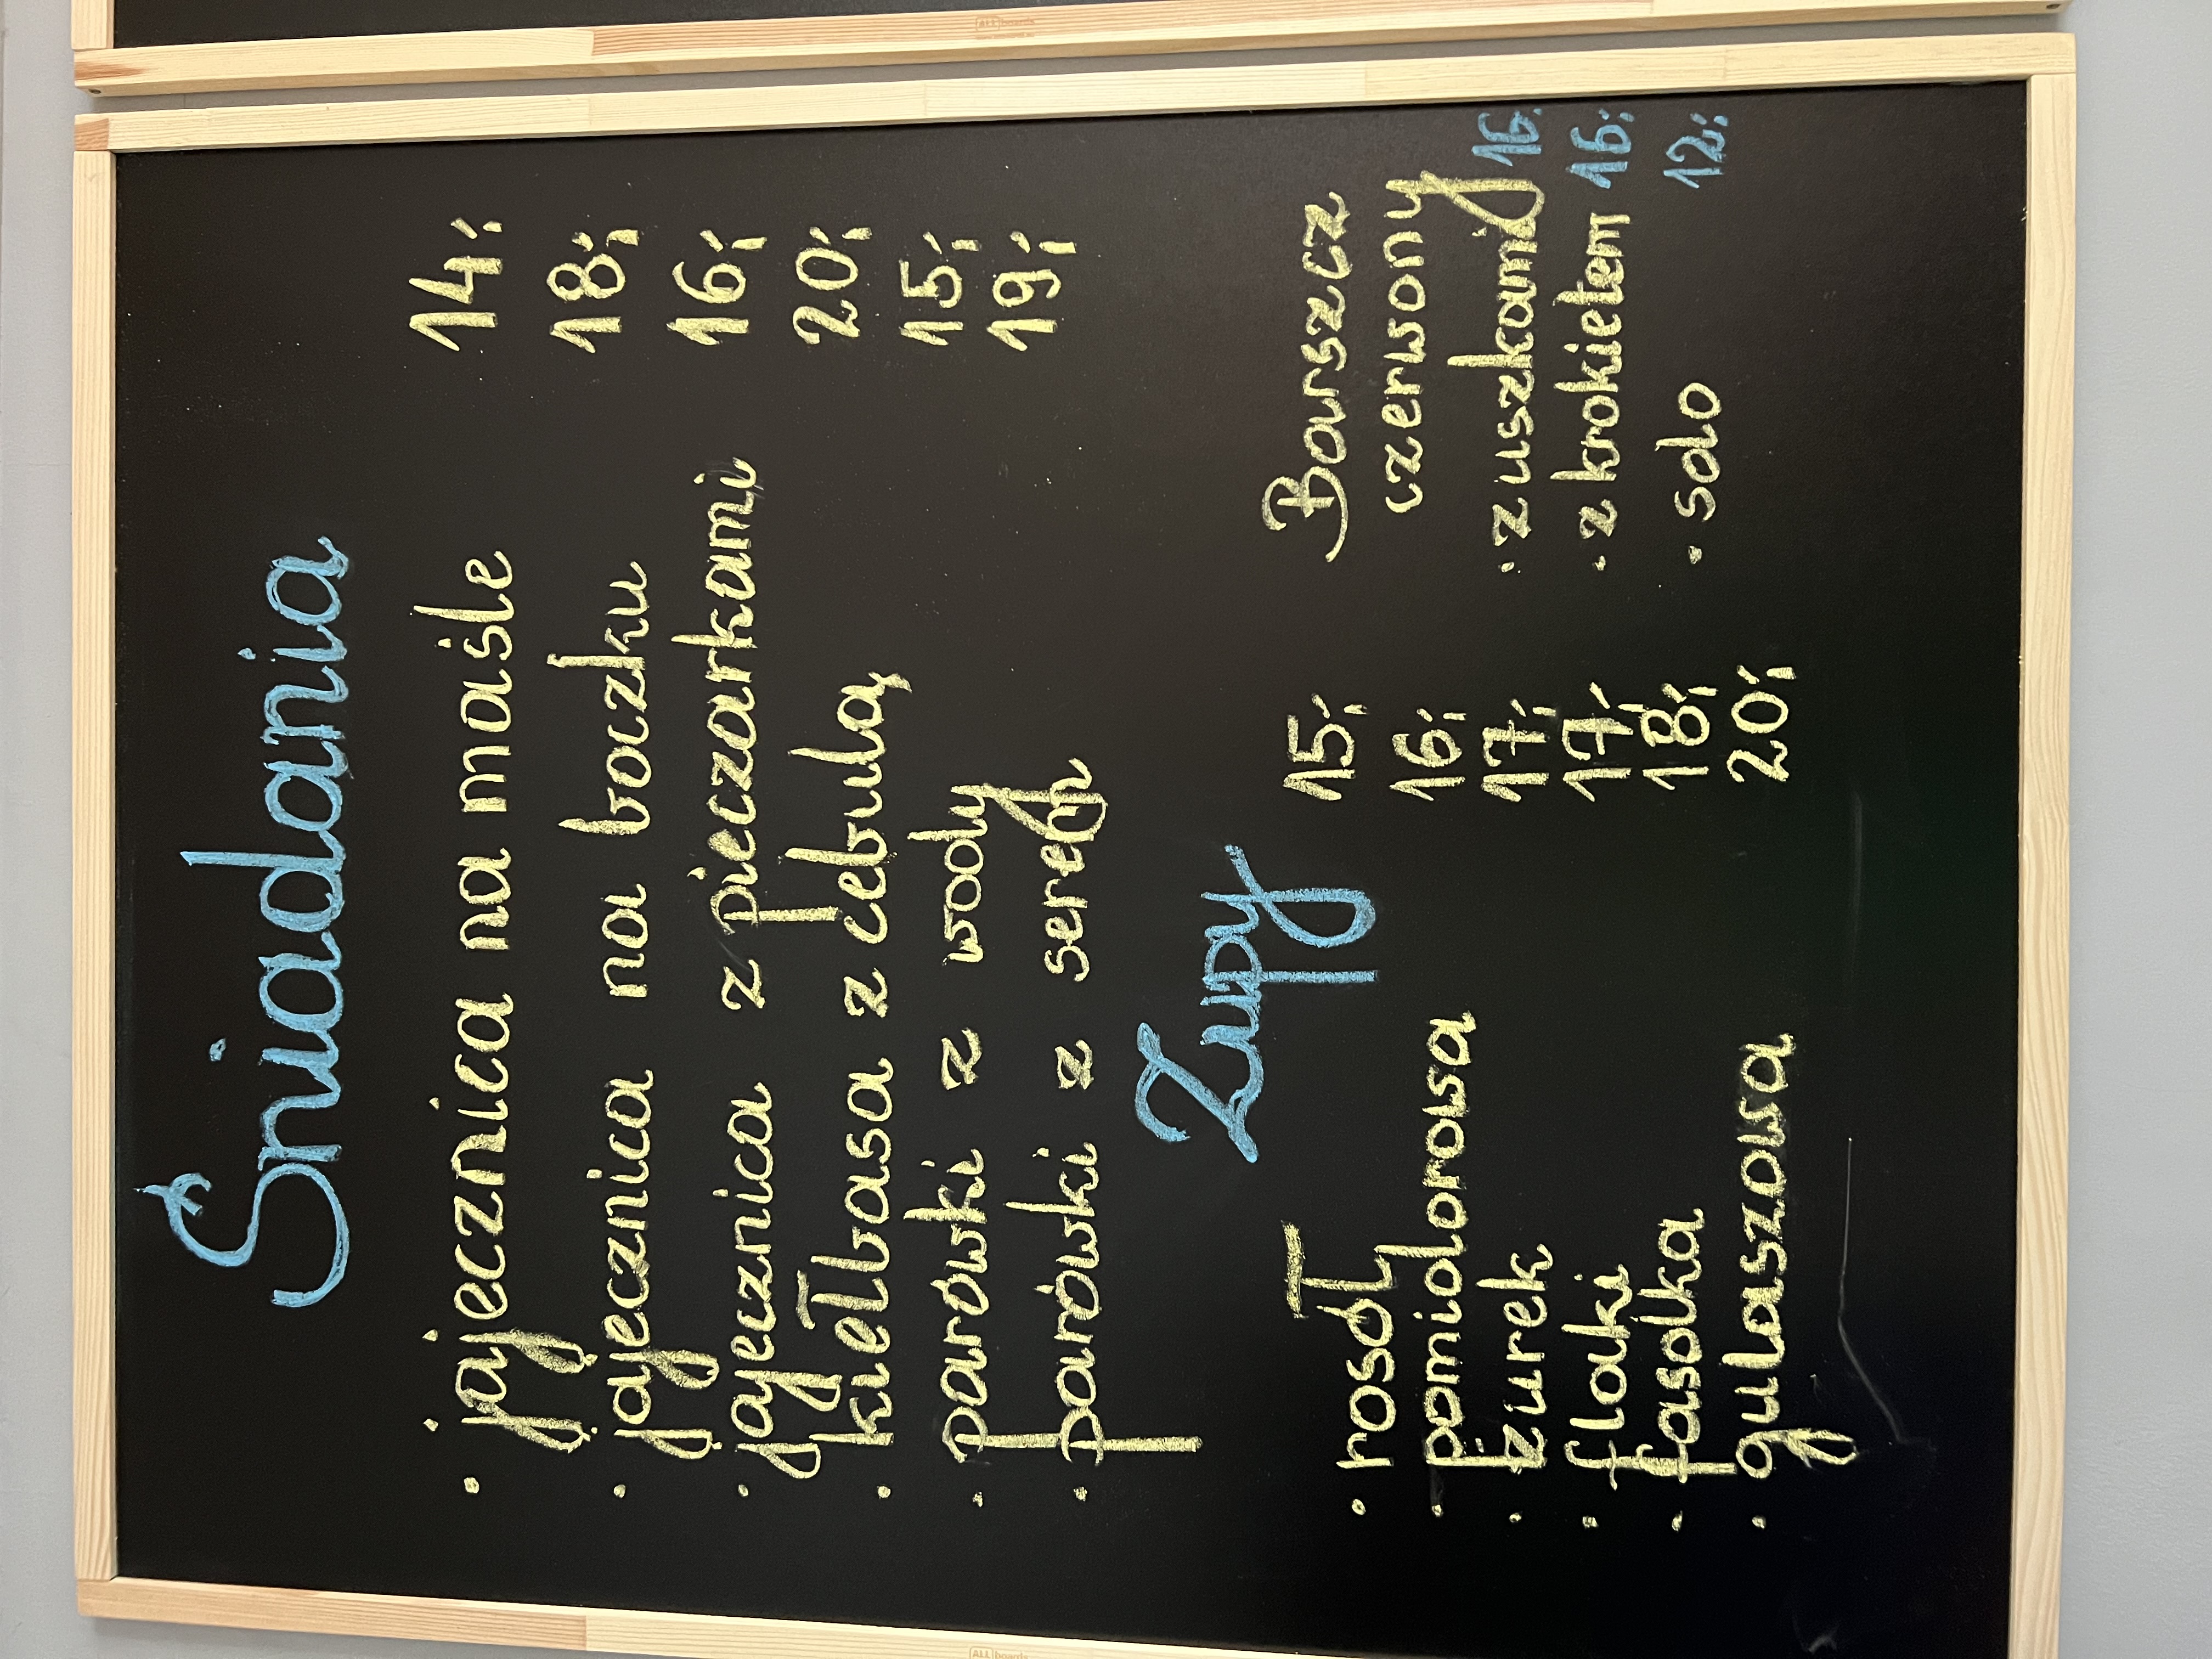 Śniadania
• jajecznica na maśle 14,-
• jajecznica na boczku 18,-
• jajecznica z pieczarkami 16,-
• kiełbasa z cebulą 20,-
• parówki z wody 15,-
• parówki z serem 19,-
Zupy
• rosół 15,-
• pomidorowa 16,-
• żurek 17,-
• flaki 17,-
• fasolka 18,-
• gulaszowa 20,-
Barszcz
czerwony
• z uszkami 16,-
• z krokietem 16,-
• solo 12,-
ALLboards